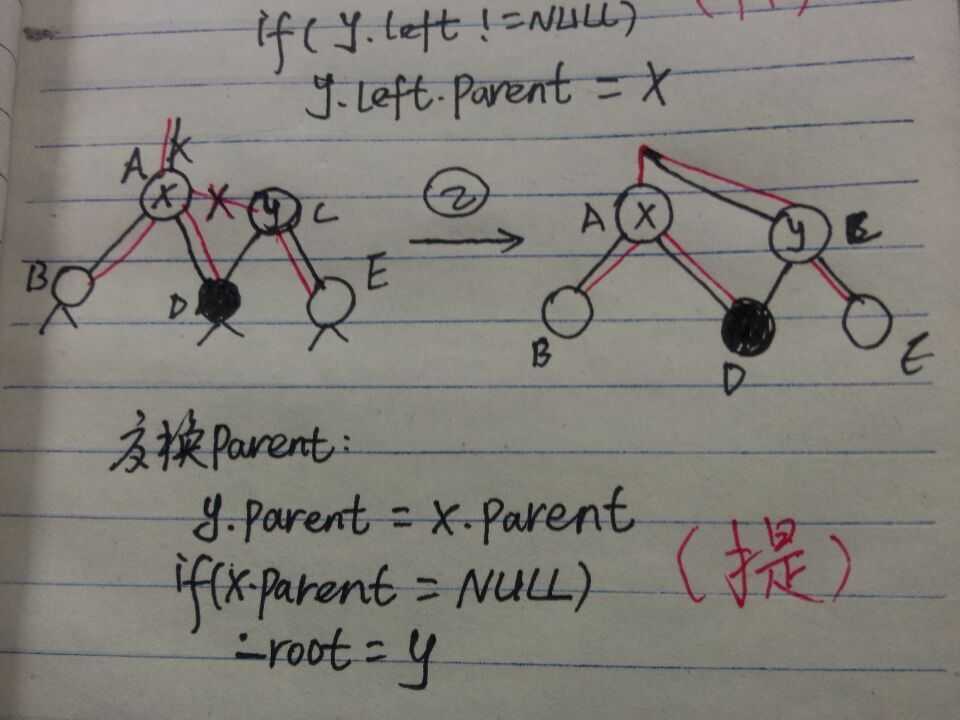 if(y.left!=NULL)
y.left.parent = x
A x y C ② A x y
B D E B D E
变换parent:
y.parent = x.parent
if(x.parent = NULL) (提)
-root = y